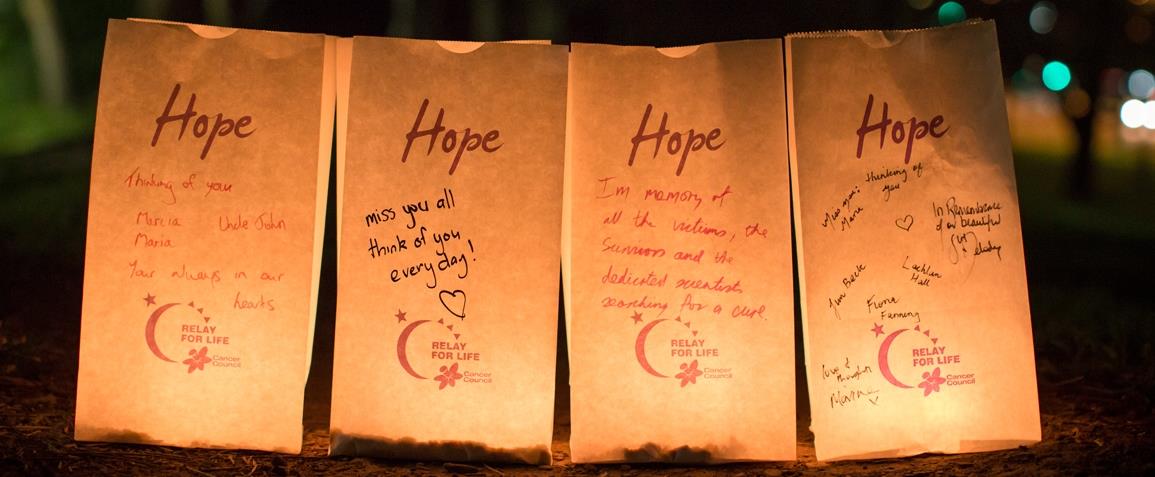 Hope
Thinking of you
Marcia Uncle John
Maria
Your always in our
hearts
RELAY
FOR LIFE
Cancer
Council
Hope
miss you all
think of you
everyday!
RELAY
FOR LIFE
Cancer
Council
Hope
In memory of
all the victims, the
Survivors and the
dedicated scientists
searching for a cure.
RELAY
FOR LIFE
Cancer
Council
Hope
thinking of
you
Miss you
Maria
In Remembrance
of our beautiful
Lachlan
Hall
Jim Beck
Fiona
Fanning
RELAY
FOR LIFE
Cancer
Council
love &
thoughts